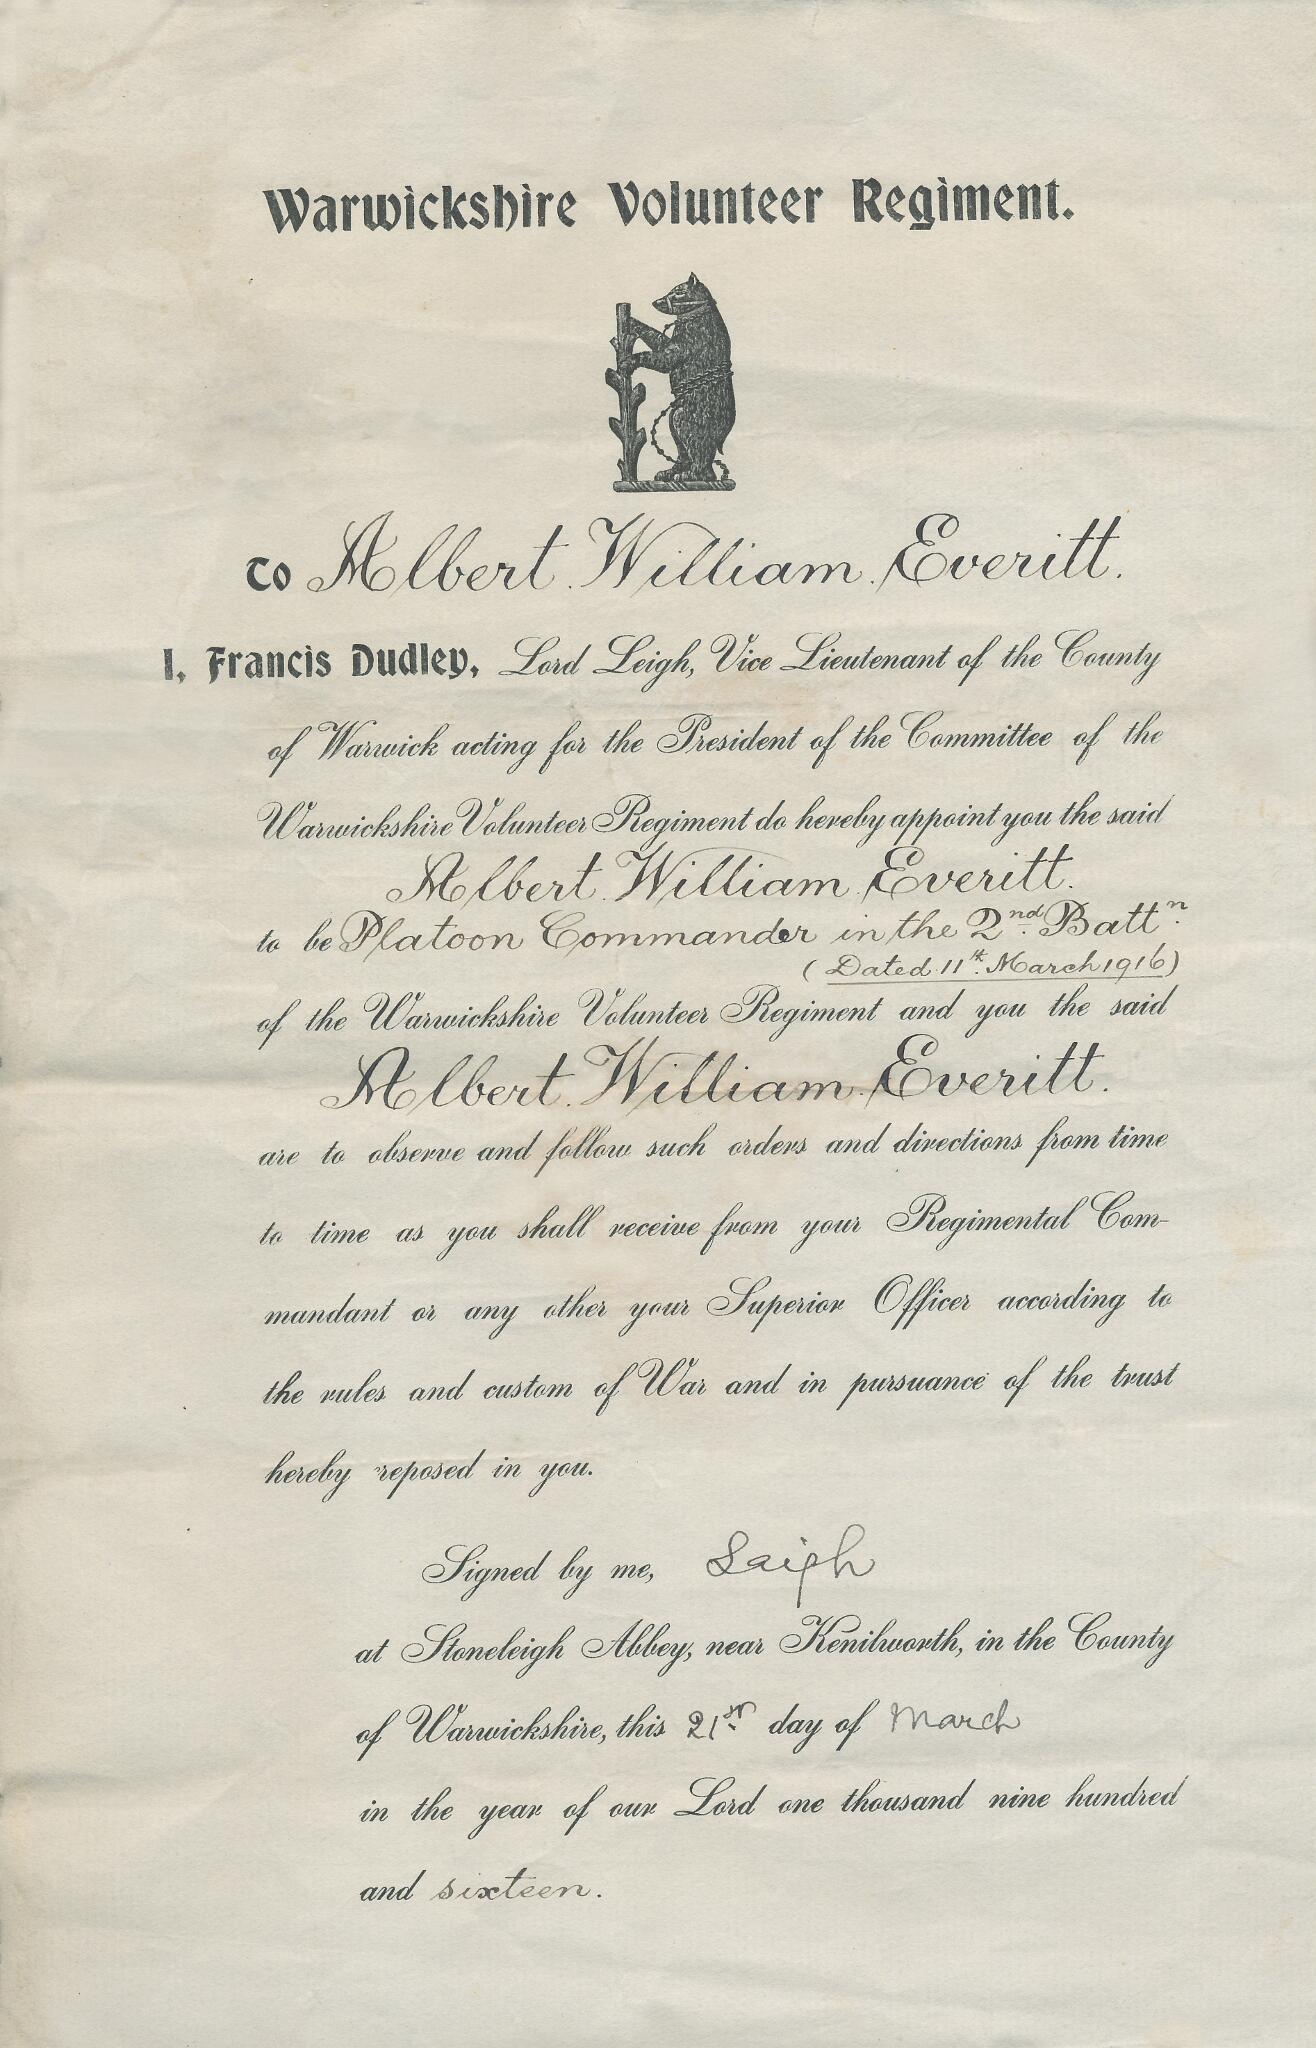 Warwickshire Volunteer Regiment.
To Albert William Everitt.
I, Francis Dudley, Lord Leigh, Vice Lieutenant of the County
of Warwick acting for the President of the Committee of the
Warwickshire Volunteer Regiment do hereby appoint you the said
Albert William Everitt.
to be Platoon Commander in the 2nd Battn
(Dated 11th March 1916)
of the Warwickshire Volunteer Regiment and you the said
Albert William Everitt.
are to observe and follow such orders and directions from time
to time as you shall receive from your Regimental Com-
mandant or any other your Superior Officer according to
the rules and custom of War and in pursuance of the trust
hereby reposed in you.
Signed by me, Leigh
at Stoneleigh Abbey, near Kenilworth, in the County
of Warwickshire, this 21st day of March
in the year of our Lord one thousand nine hundred
and sixteen.